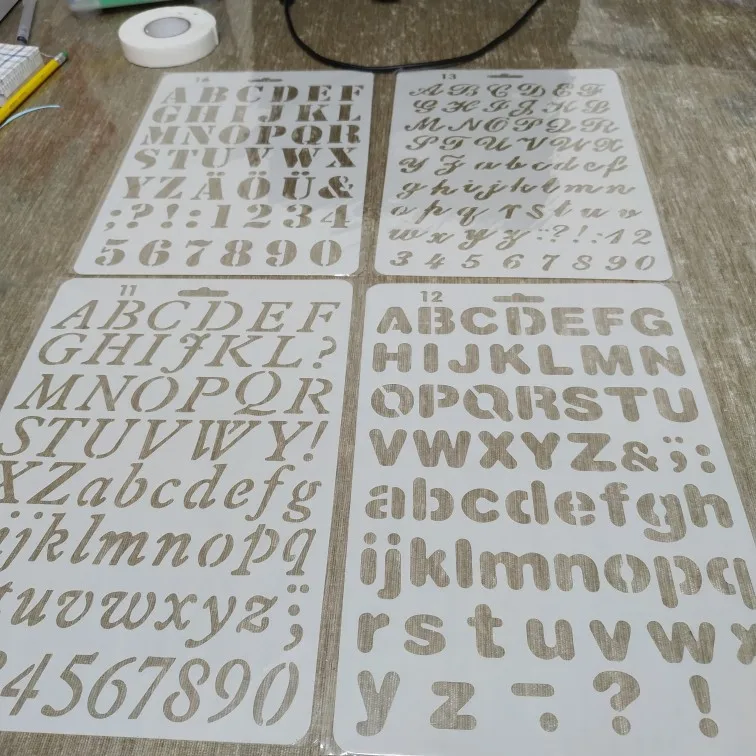 16
ABCDEF
GHIJKL
MNOPQR
STUVWX
YZÄÖÜ&
;?!:1234
567890
13
ABCDEF
GHIJKL
MNOPQR
STUVWX
YZabcdef
ghijklmn
opqrstuv
wxyz;?!:12
34567890
11
ABCDEF
GHIJKL?
MNOPQR
STUVWY!
XZabcdefg
ijklmnopq
tuvwxyz;
4567890
12
ABCDEFG
HIJKLMN
OPQRSTU
VWXYZ&;:
abcdefgh
ijklmnopq
rstuvwx
yz-.?!